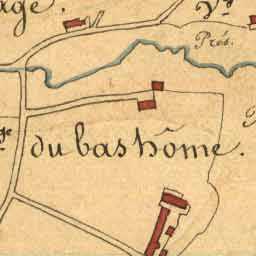 age.
Prés.
du bas hôme.